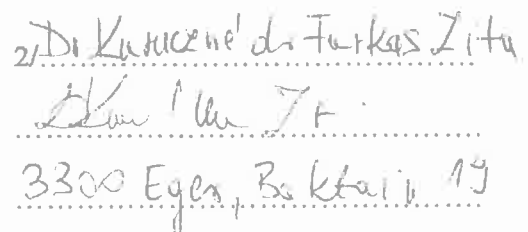 2, Dr Kuruczné dr Farkas Zita
3300 Eger, Baktai u 19